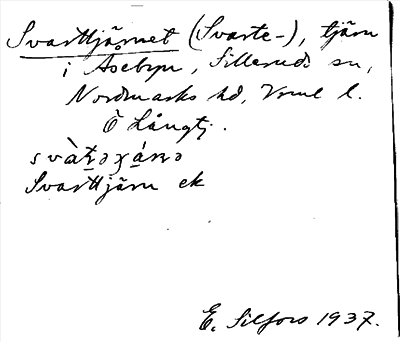 Svarttjärnet (Svarte-), tjärn
i Åsebyn, Sillerud sn,
Nordmarks hd, Vrml l.
Ö Långtj.
Svarttjärn ek
E. Silfors 1937.